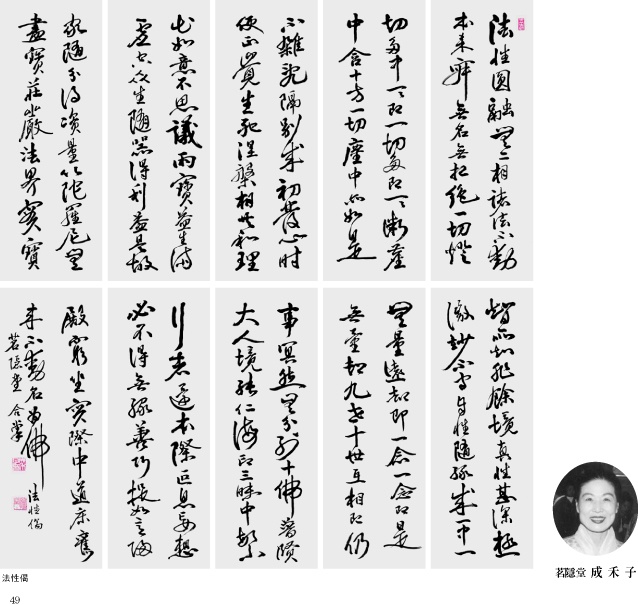 法性圓融無二相諸法不動
本來寂無名無相絶一切證
智所知非餘境真性甚深極
微妙不守自性隨緣成一中一
切多中一一即一切多即一一微塵
中含十方一切塵中亦如是
無量遠劫即一念一念即是
無量劫九世十世互相即仍
不雜亂隔別成初發心時
便正覺生死涅槃相共和理
事冥然無分別十佛普賢
大人境能仁海印三昧中繁
出如意不思議雨寶益生滿
虛空衆生隨器得利益是故
行者還本際叵息妄想
必不得無緣善巧捉如意歸
家隨分得資量以陀羅尼無
盡寶莊嚴法界實寶
殿窮坐實際中道床舊
來不動名為佛
茗隱堂 合掌
法性偈
茗隱堂 成禾子
法性偈
49